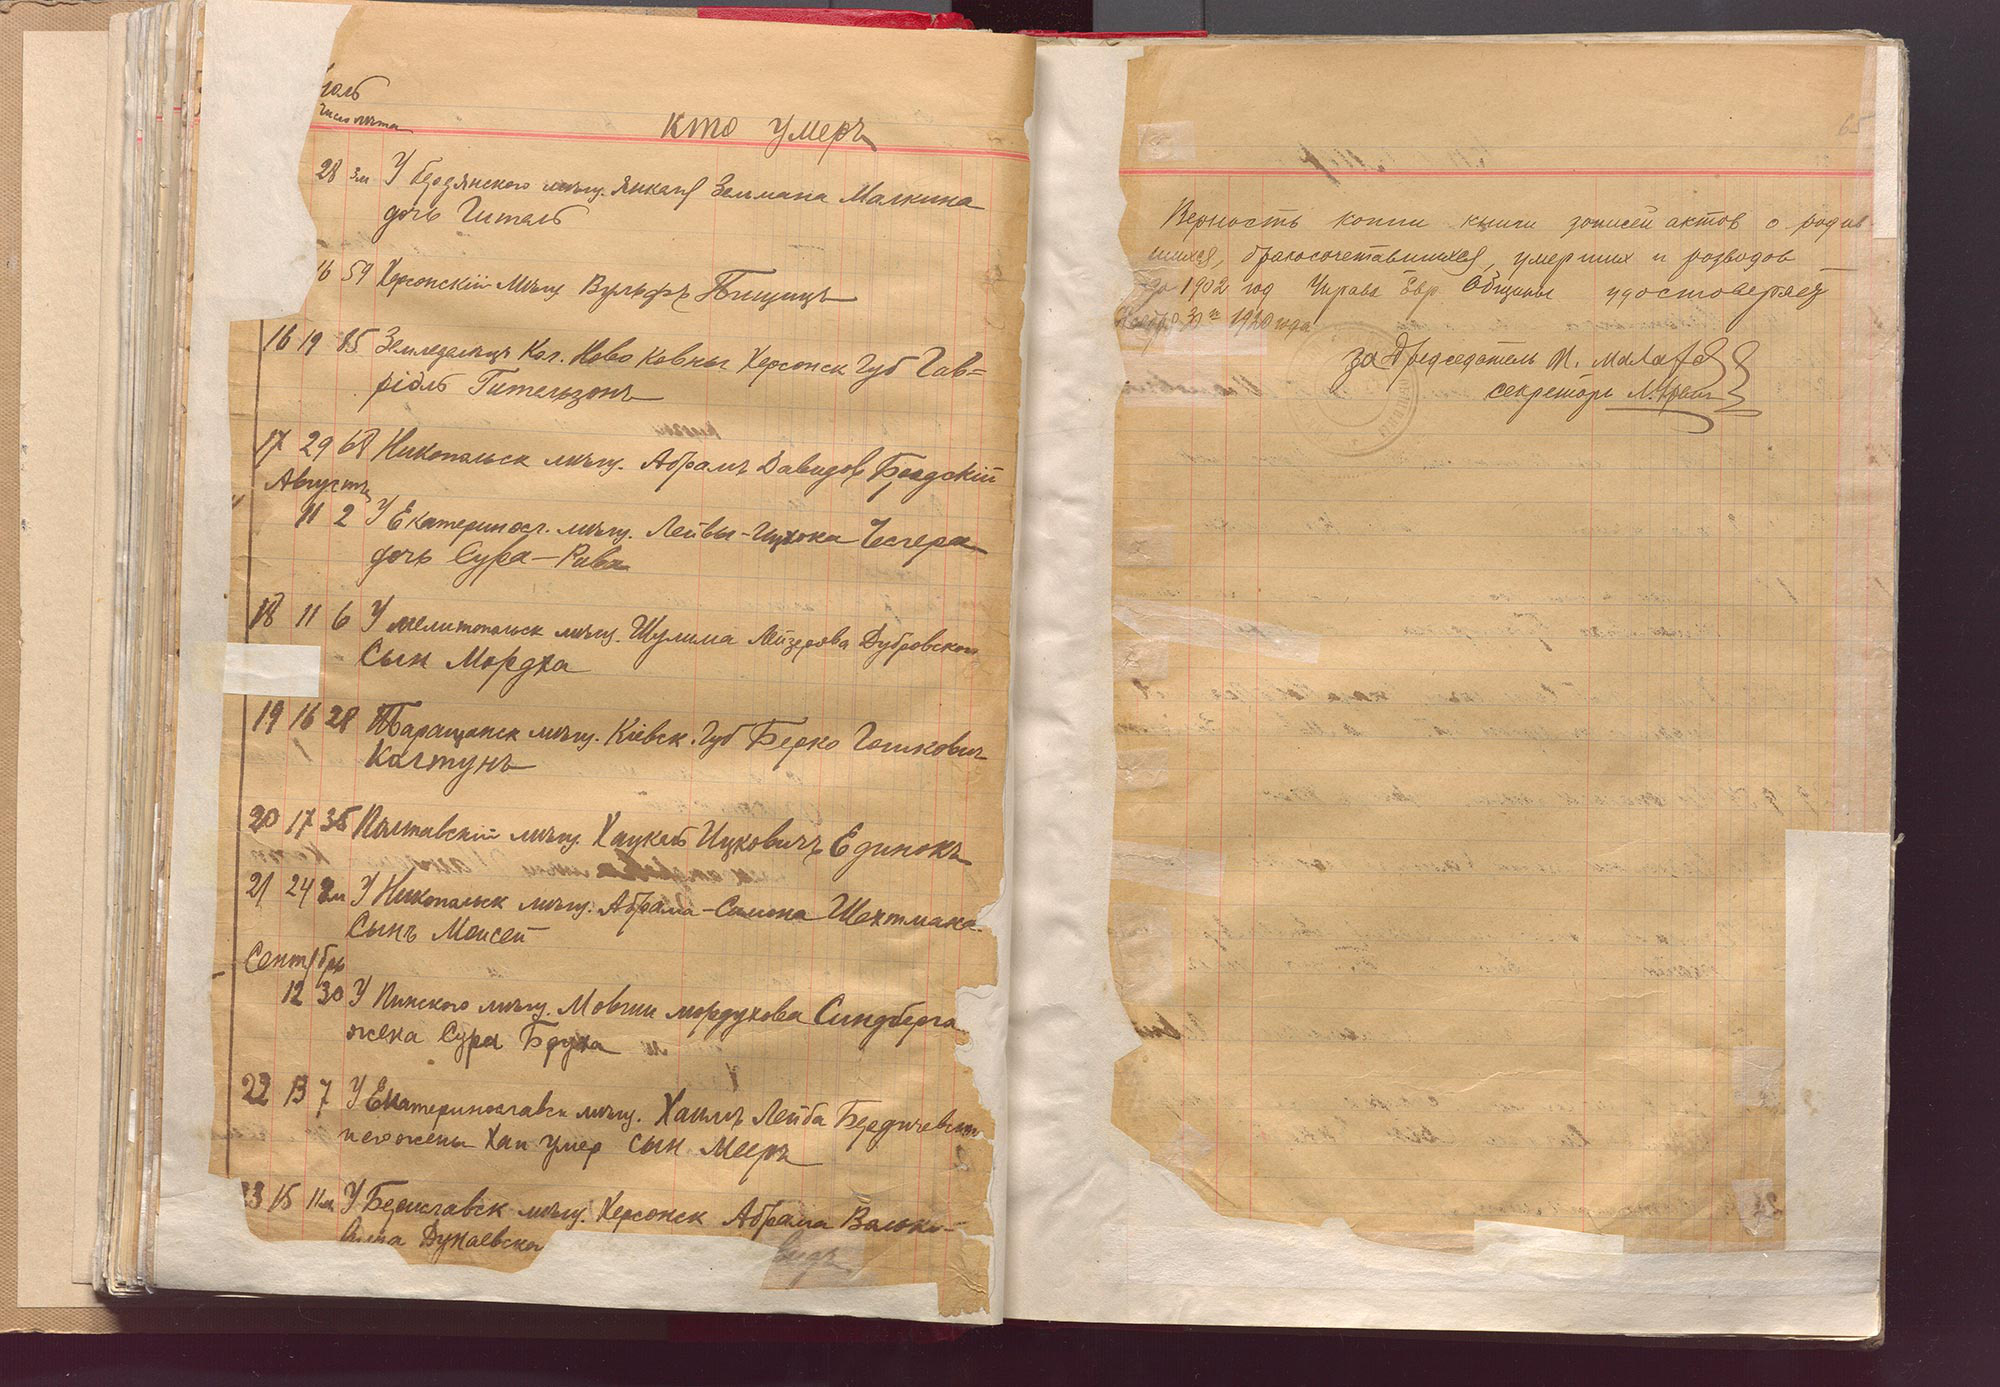 число лѣта
Кто умеръ
28 3м У бердянского мѣщ. Янкеля Зельмана Малкина
дочь Гитель
16 59 Херсонскій мѣщ Вульфъ
16 19 85 Земледелецъ Кол. Ново Ковны Херсонск Губ Гав=
ріэль Гительзонъ
17 29 68 Никопольск мѣщ. Абрамъ Давидов Бродскій
Августъ
11 2 У Екатеринос. мѣщ. Лейбы-Ицхока
дочь Сура-Рива
18 11 6 У мелитопольск мѣщ. Шулима Лейзерова Дубровского
Сын Мордха
19 16 28 Таращанск мѣщ. Кіевск. Губ Берко Гошкович
Колтунъ
20 17 35 Полтавскій мѣщ. Хацкель Ицковичъ Единокъ
21 24 8м У Никопольск мѣщ. Абрама-Симона Шехтмана
Сынъ Моисей
Сентябрь
12 30 У Пинского мѣщ. Мовши мордухова Синдберга
жена Сура Бруха
22 13 7 У Екатеринославск мѣщ. Хаимъ Лейба Бердичевский
и его жены Хаи умер сын Мееръ
23 15 11м У Бериславск мѣщ. Херсонск Абрама
Дунаевско
65
Верность копии книги записей актов о родив
шихся, бракосочетавшихся, умерших и разводов
за 1902 год Управа Евр. Общины удостоверяет
Ноября 30го 1920 года
за Председатель М.
секретарь